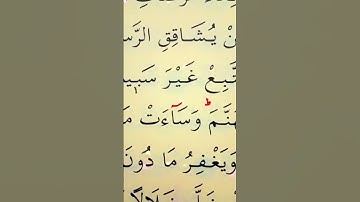 نْ يُشَاقِقِ الرَّسُ
تَّبِعْ غَيْرَ سَبِيلِ
هَنَّمَ ؕ وَسَآءَتْ مَ
وَيَغْفِرُ مَا دُونَ
ضَلَّ ضَلَالًا